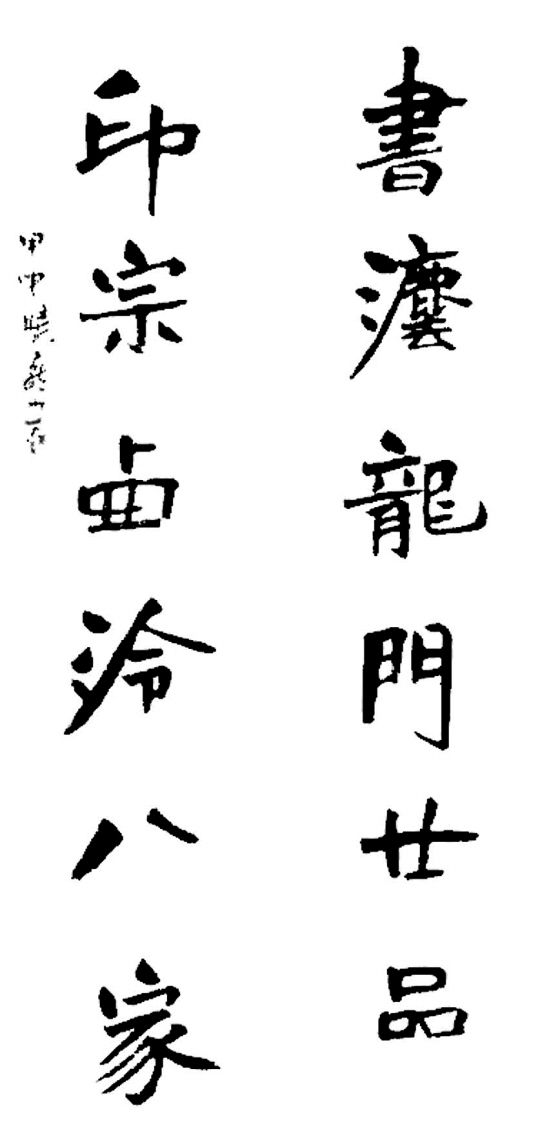 書灋龍門廿品
印宗卥泠八家
甲申曉